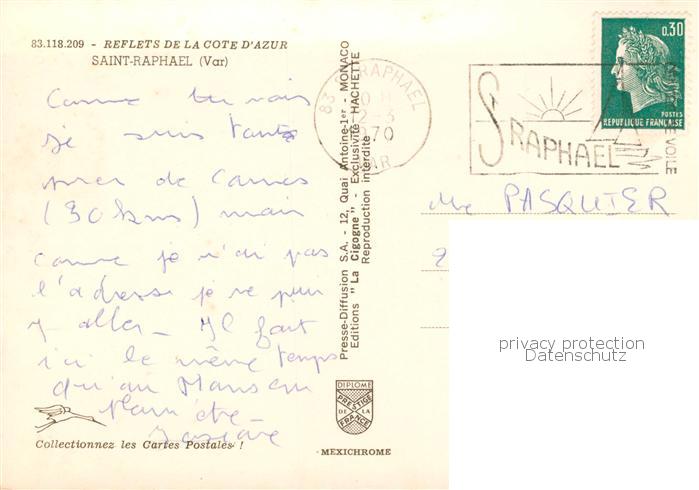 83.118.209 - REFLETS DE LA COTE D'AZUR
SAINT-RAPHAEL (Var)
Comme tu vois
je suis
de Cannes
(30 kms) mais
comme je n'ai pas
l'adresse je ne puis
y aller_ Il fait
ici le même temps
qu'au
Collectionnez les Cartes Postales !
Presse-Diffusion S.A. - 12, Quai Antoine-1er - MONACO
Editions "La Cigogne" - Exclusivité HACHETTE
Reproduction interdite
DIPLOME
PRESTIGE
DE LA
FRANCE
MEXICHROME
83 ST RAPHAEL
12-3
1970
VAR
ST RAPHAEL
VOILE
0,30
POSTES
REPUBLIQUE FRANÇAISE
PASQUIER
privacy protection
Datenschutz